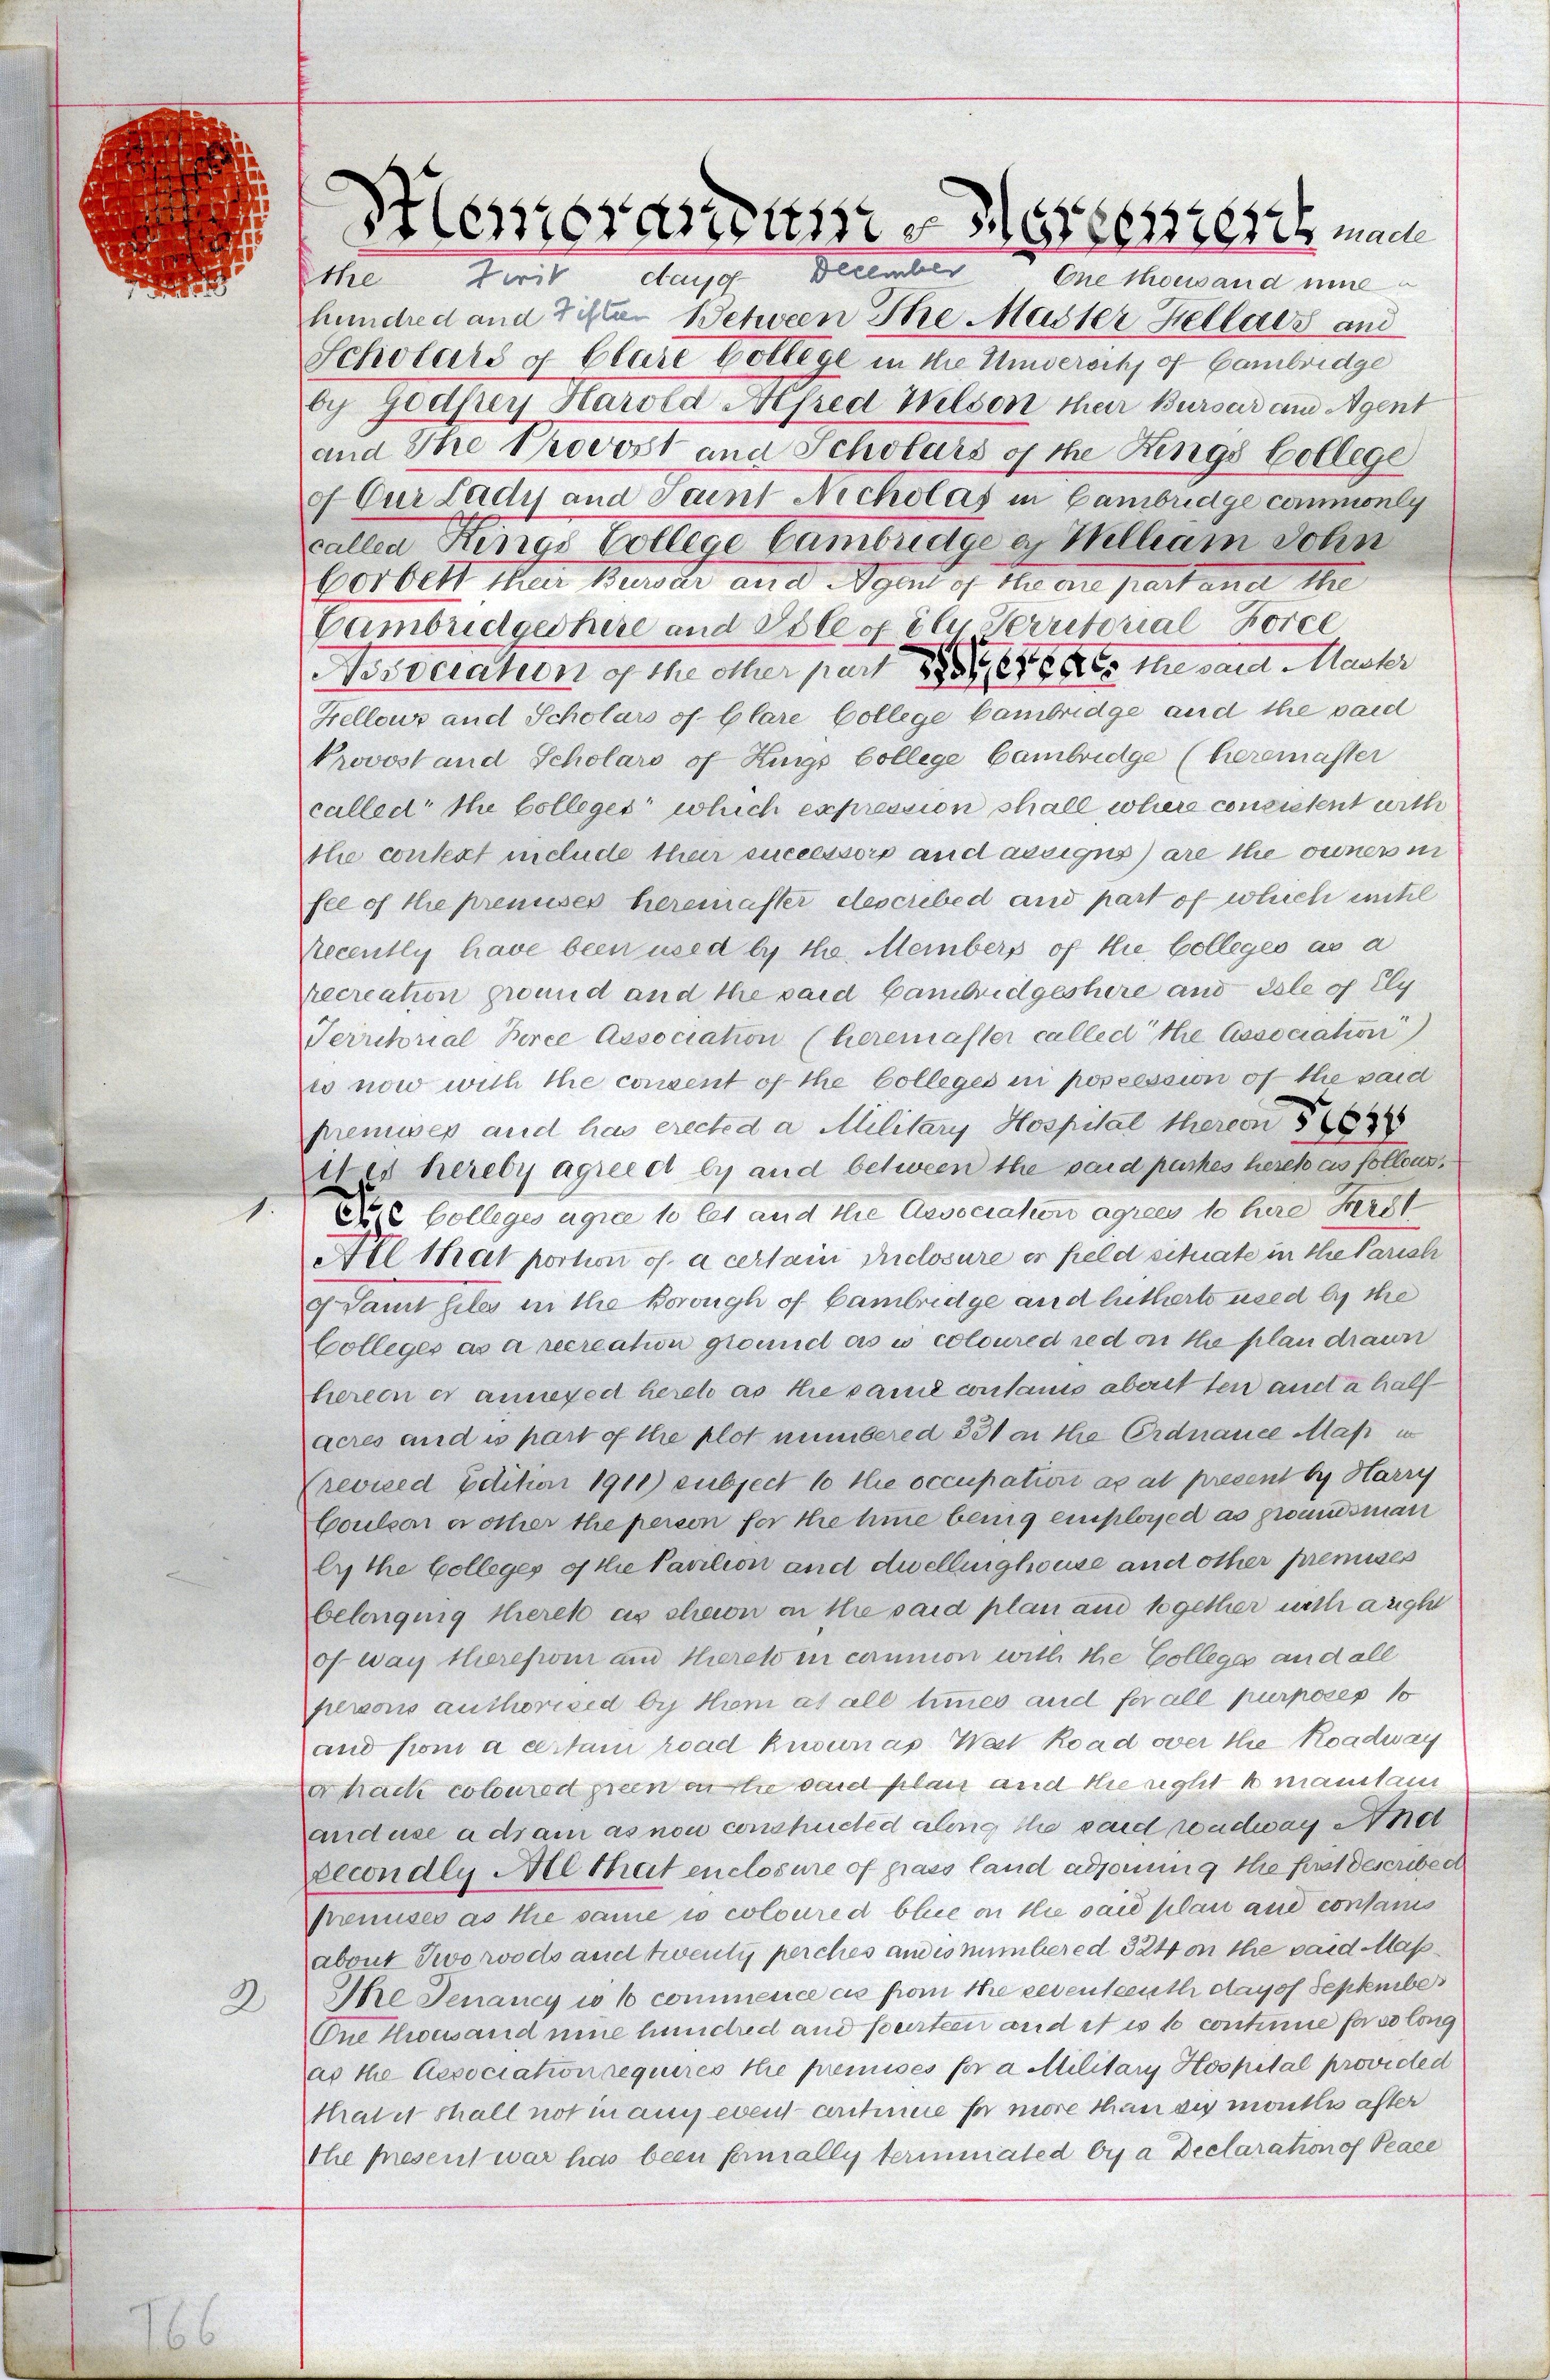 Memorandum of Agreement made
the First day of December One thousand nine
hundred and Fifteen Between The Master Fellows and
Scholars of Clare College in the University of Cambridge
by Godfrey Harold Alfred Wilson their Bursar and Agent
and The Provost and Scholars of the Kings College
of Our Lady and Saint Nicholas in Cambridge commonly
called Kings College Cambridge by William John
Corbett their Bursar and Agent of the one part and the
Cambridgeshire and Isle of Ely Territorial Force
Association of the other part Whereas the said Master
Fellows and Scholars of Clare College Cambridge and the said
Provost and Scholars of Kings College Cambridge (hereinafter
called "the Colleges" which expression shall where consistent with
the context include their successors and assigns) are the owners in
fee of the premises hereinafter described and part of which until
recently have been used by the Members of the Colleges as a
recreation ground and the said Cambridgeshire and Isle of Ely
Territorial Force Association (hereinafter called "the Association")
is now with the consent of the Colleges in possession of the said
premises and has erected a Military Hospital thereon Now
it is hereby agreed by and between the said parties hereto as follows:
1. The Colleges agree to let and the Association agrees to hire First
All that portion of a certain inclosure or field situate in the Parish
of Saint Giles in the Borough of Cambridge and hitherto used by the
Colleges as a recreation ground as is coloured red on the plan drawn
hereon or annexed hereto as the same contains about ten and a half
acres and is part of the plot numbered 331 on the Ordnance Map
(revised Edition 1911) subject to the occupation as at present by Harry
Coulson or other the person for the time being employed as groundsman
by the Colleges of the Pavilion and dwellinghouse and other premises
belonging thereto as shewn on the said plan and together with a right
of way therefrom and thereto in common with the Colleges and all
persons authorised by them at all times and for all purposes to
and from a certain road known as West Road over the Roadway
or track coloured green on the said plan and the right to maintain
and use a drain as now constructed along the said roadway And
secondly All that enclosure of grass land adjoining the first described
premises as the same is coloured blue on the said plan and contains
about Two roods and twenty perches and is numbered 324 on the said Map
2 The Tenancy is to commence as from the seventeenth day of September
One thousand nine hundred and fourteen and it is to continue for so long
as the Association requires the premises for a Military Hospital provided
that it shall not in any event continue for more than six months after
the present war has been formally terminated by a Declaration of Peace
T66